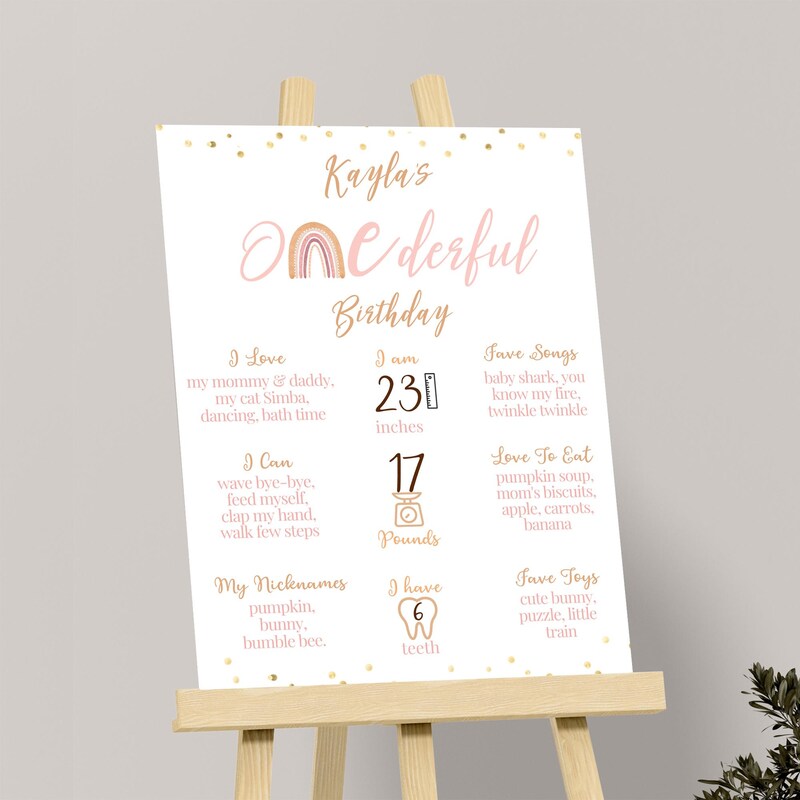 Kayla's
ONEderful
Birthday
I Love
my mommy & daddy,
my cat Simba,
dancing, bath time
I am
23
inches
Fave Songs
baby shark, you
know my fire,
twinkle twinkle
I Can
wave bye-bye,
feed myself,
clap my hand,
walk few steps
17
Pounds
Love To Eat
pumpkin soup,
mom's biscuits,
apple, carrots,
banana
My Nicknames
pumpkin,
bunny,
bumble bee.
I have
6
teeth
Fave Toys
cute bunny,
puzzle, little
train